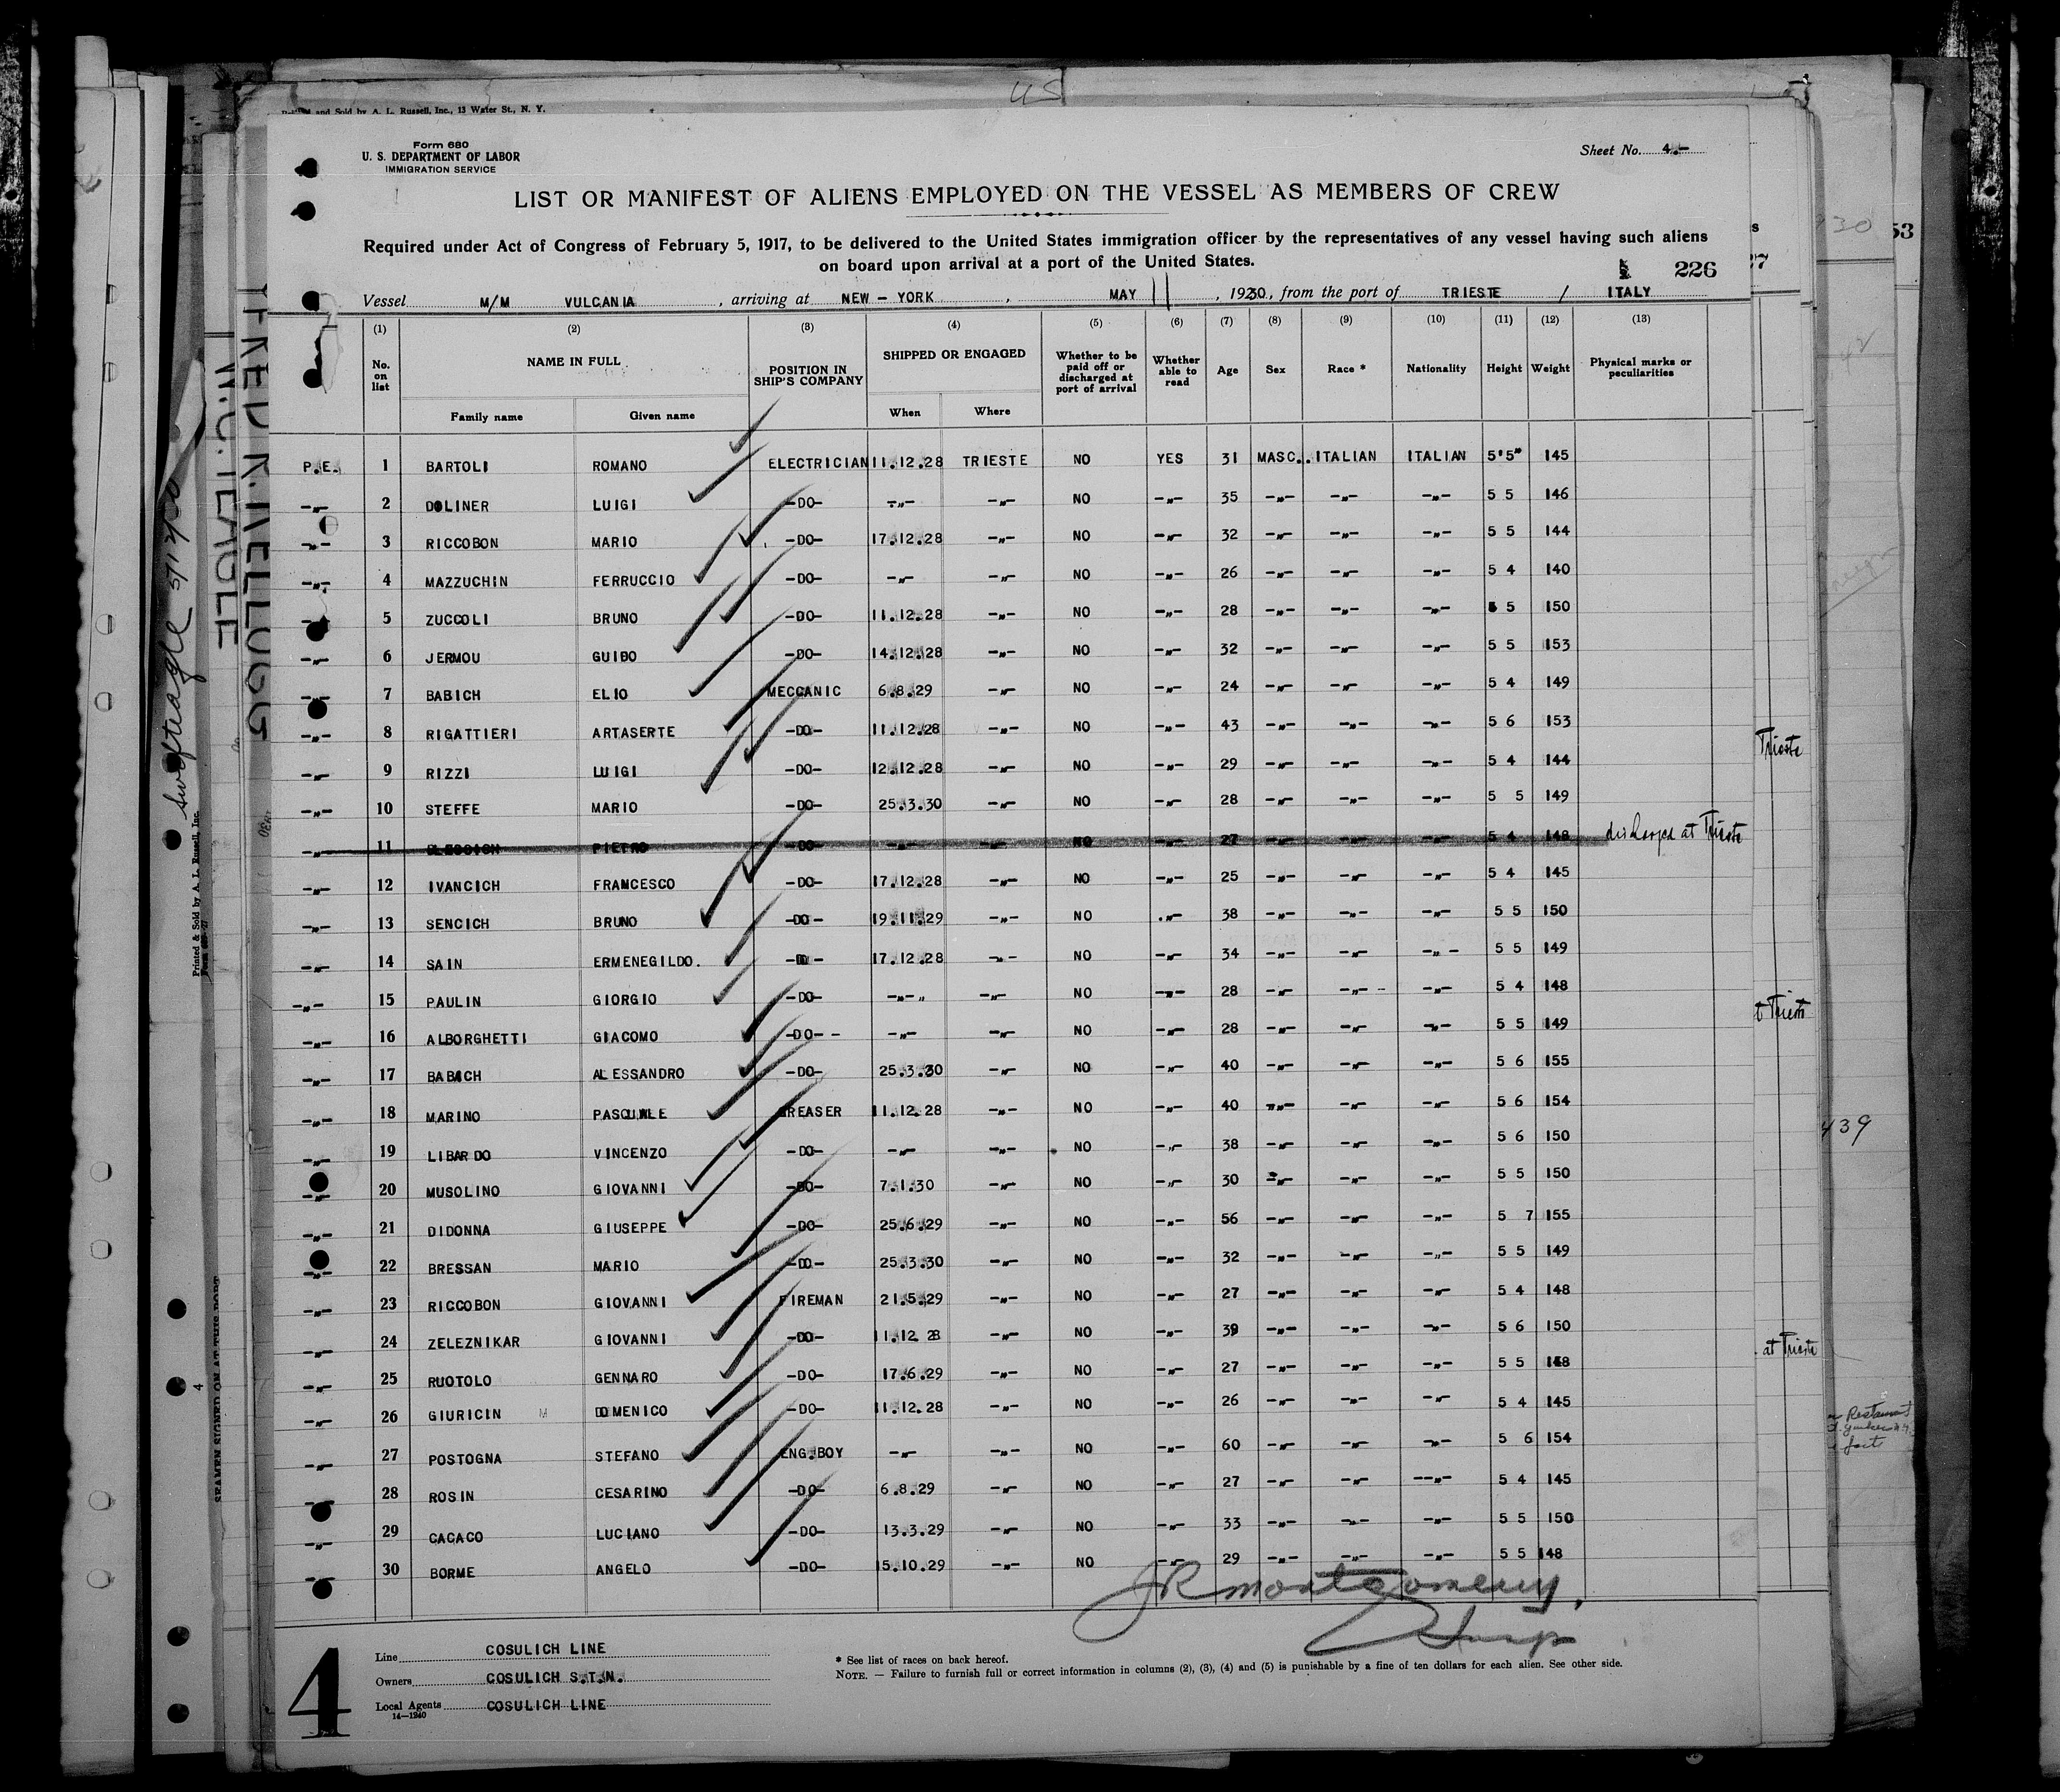 US
Printed and Sold by A. L. Russell, Inc., 13 Water St., N. Y.
Form 680
U. S. DEPARTMENT OF LABOR
IMMIGRATION SERVICE
Sheet No. 4.-
LIST OR MANIFEST OF ALIENS EMPLOYED ON THE VESSEL AS MEMBERS OF CREW
Required under Act of Congress of February 5, 1917, to be delivered to the United States immigration officer by the representatives of any vessel having such aliens
on board upon arrival at a port of the United States.
226
Vessel M/M VULCANIA, arriving at NEW-YORK, MAY 11, 1930, from the port of TRIESTE / ITALY
(1) (2) (3) (4) (5) (6) (7) (8) (9) (10) (11) (12) (13)
No. on list NAME IN FULL POSITION IN SHIP'S COMPANY SHIPPED OR ENGAGED Whether to be paid off or discharged at port of arrival Whether able to read Age Sex Race * Nationality Height Weight Physical marks or peculiarities
Family name Given name When Where
P.E. 1 BARTOLI ROMANO ELECTRICIAN 11.12.28 TRIESTE NO YES 31 MASC. ITALIAN ITALIAN 5'5" 145
-"- 2 DOLINER LUIGI -DO- -"- -"- NO -"- 35 -"- -"- -"- 5 5 146
-"- 3 RICCOBON MARIO -DO- 17.12.28 -"- NO -"- 32 -"- -"- -"- 5 5 144
-"- 4 MAZZUCHIN FERRUCCIO -DO- -"- -"- NO -"- 26 -"- -"- -"- 5 4 140
-"- 5 ZUCCOLI BRUNO -DO- 11.12.28 -"- NO -"- 28 -"- -"- -"- 5 5 150
-"- 6 JERMOU GUIBO -DO- 14.12.28 -"- NO -"- 32 -"- -"- -"- 5 5 153
-"- 7 BABICH ELIO MECCANIC 6.8.29 -"- NO -"- 24 -"- -"- -"- 5 4 149
-"- 8 RIGATTIERI ARTASERTE -DO- 11.12.28 -"- NO -"- 43 -"- -"- -"- 5 6 153
-"- 9 RIZZI LUIGI -DO- 12.12.28 -"- NO -"- 29 -"- -"- -"- 5 4 144
-"- 10 STEFFE MARIO -DO- 25.3.30 -"- NO -"- 28 -"- -"- -"- 5 5 149
-"- 11 PIETRO -DO- -"- -"- NO -"- 27 -"- -"- -"- 5 4 148 discharged at Trieste
-"- 12 IVANCICH FRANCESCO -DO- 17.12.28 -"- NO -"- 25 -"- -"- -"- 5 4 145
-"- 13 SENCICH BRUNO -DO- 19.11.29 -"- NO -"- 38 -"- -"- -"- 5 5 150
-"- 14 SAIN ERMENEGILDO. -DO- 17.12.28 -"- NO -"- 34 -"- -"- -"- 5 5 149
-"- 15 PAULIN GIORGIO -DO- -"- -"- NO -"- 28 -"- -"- -"- 5 4 148
-"- 16 ALBORGHETTI GIACOMO -DO- -"- -"- NO -"- 28 -"- -"- -"- 5 5 149
-"- 17 BABICH ALESSANDRO -DO- 25.3.30 -"- NO -"- 40 -"- -"- -"- 5 6 155
-"- 18 MARINO PASQUALE GREASER 11.12.28 -"- NO -"- 40 -"- -"- -"- 5 6 154
-"- 19 LIBARDO VINCENZO -DO- -"- -"- NO -"- 38 -"- -"- -"- 5 6 150
-"- 20 MUSOLINO GIOVANNI -DO- 7.1.30 -"- NO -"- 30 -"- -"- -"- 5 5 150
-"- 21 DIDONNA GIUSEPPE -DO- 25.6.29 -"- NO -"- 56 -"- -"- -"- 5 7 155
-"- 22 BRESSAN MARIO -DO- 25.3.30 -"- NO -"- 32 -"- -"- -"- 5 5 149
-"- 23 RICCOBON GIOVANNI FIREMAN 21.5.29 -"- NO -"- 27 -"- -"- -"- 5 4 148
-"- 24 ZELEZNIKAR GIOVANNI -DO- 11.12.28 -"- NO -"- 39 -"- -"- -"- 5 6 150
-"- 25 RUOTOLO GENNARO -DO- 17.6.29 -"- NO -"- 27 -"- -"- -"- 5 5 148
-"- 26 GIURICIN DOMENICO -DO- 11.12.28 -"- NO -"- 26 -"- -"- -"- 5 4 145
-"- 27 POSTOGNA STEFANO ENG.BOY -"- -"- NO -"- 60 -"- -"- -"- 5 6 154
-"- 28 ROSIN CESARINO -DO- 6.8.29 -"- NO -"- 27 -"- -"- -"- 5 4 145
-"- 29 CACACO LUCIANO -DO- 13.3.29 -"- NO -"- 33 -"- -"- -"- 5 5 150
-"- 30 BORME ANGELO -DO- 15.10.29 -"- NO -"- 29 -"- -"- -"- 5 5 148
JR Montgomery,
Insp
4
Line COSULICH LINE
Owners COSULICH S.T.N.
Local Agents COSULICH LINE
14—1240
* See list of races on back hereof.
NOTE. — Failure to furnish full or correct information in columns (2), (3), (4) and (5) is punishable by a fine of ten dollars for each alien. See other side.
Swifteagle
W.C. TEAGLE
FRED W. KELLOGG
Printed & Sold by A. L. Russell, Inc.
SEAMEN SIGNED ON AT THIS PORT
4
930
53
Trieste
t Trieste
439
at Trieste